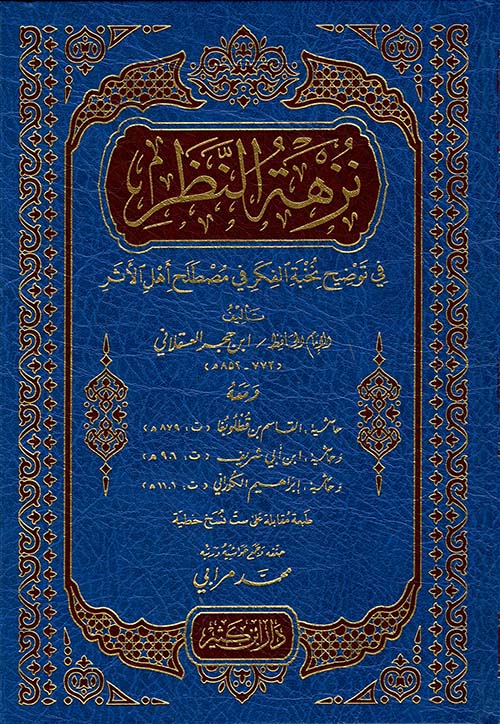 نُزْهَةُ النَّظَرِ
في تَوْضِيحِ نُخْبَةِ الفِكَرِ في مُصْطَلَحِ أَهْلِ الأَثَرِ
تأليف
الإمام الحافظ / ابن حجر العسقلاني
(٧٧٣ - ٨٥٢ هـ)
ومعه
حاشية : القاسم بن قُطْلُوبُغا (ت: ٨٧٩ هـ)
وحاشية : ابن أبي شريف (ت: ٩٠٦ هـ)
وحاشية : إبراهيم الكوراني (ت: ١١٠١ هـ)
طبعة مُقابلة على ستّ نُسَخ خطية
حققه وجمع حواشيه ورتبه
محمد مرابي
دار ابن كثير